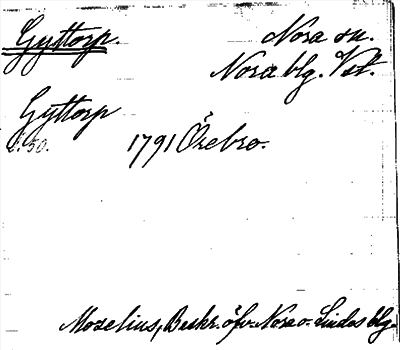 Gyttorp.
Nora sn.
Nora blg. Vstm.
Gyttorp
s. 50.
1791 Örebro.
Mozelius, Beskr. öfv. Nora o. Lindes blg.